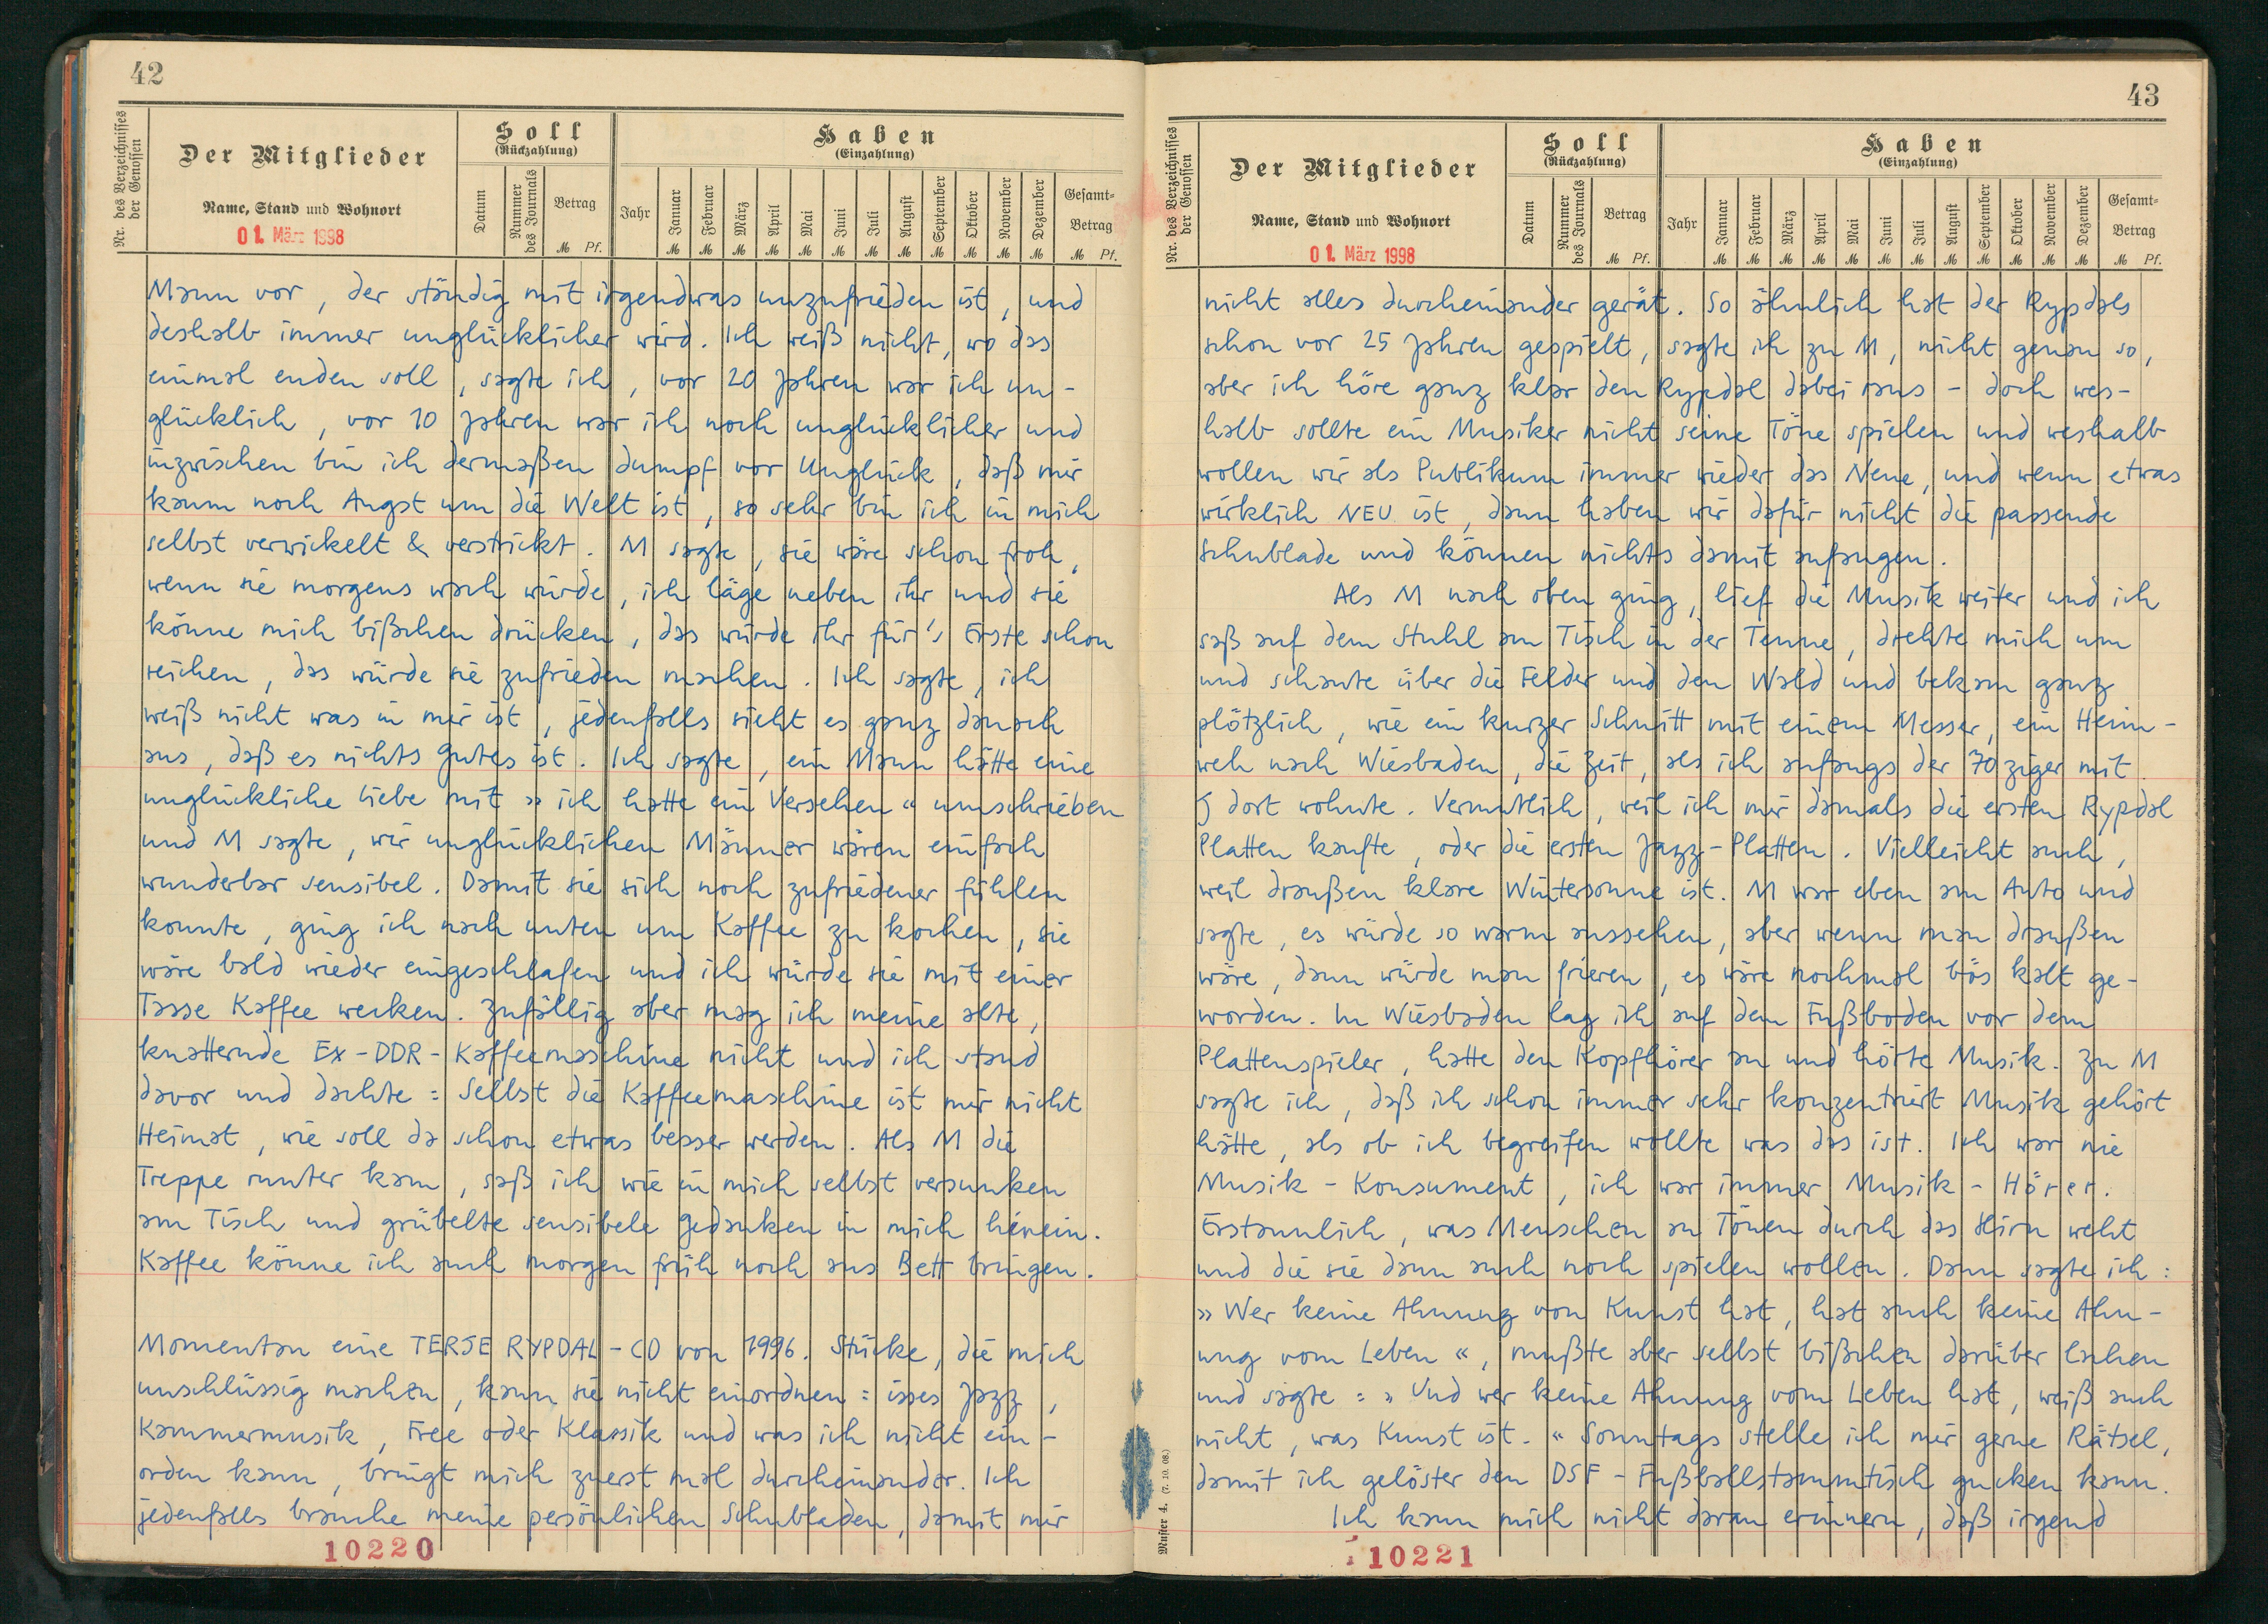 42
Nr. des Verzeichnisses der Genossen
Der Mitglieder
Name, Stand und Wohnort
01. März 1998
Soll
(Rückzahlung)
Datum
Nummer des Journals
Betrag
M Pf.
Haben
(Einzahlung)
Jahr
Januar
Februar
März
April
Mai
Juni
Juli
August
September
Oktober
November
Dezember
Gesamt-
Betrag
M M M M M M M M M M M M M Pf.
Mann vor, der ständig mit irgendwas unzufrieden ist, und
deshalb immer unglücklicher wird. Ich weiß nicht, wo das
einmal enden soll, sagte ich, vor 20 Jahren war ich un-
glücklich, vor 10 Jahren war ich noch unglücklicher und
inzwischen bin ich dermaßen dumpf vor Unglück, daß mir
kaum noch Angst um die Welt ist, so sehr bin ich in mich
selbst verwickelt & verstrickt. M sagte, sie wäre schon froh,
wenn sie morgens wach würde, ich läge neben ihr und sie
könne mich bißchen drücken, das würde ihr für's Erste schon
reichen, das würde sie zufrieden machen. Ich sagte, ich
weiß nicht was in mir ist, jedenfalls sieht es ganz danach
aus, daß es nichts Gutes ist. Ich sagte, ein Mann hätte eine
unglückliche Liebe mit » ich hatte ein Versehen « umschrieben
und M sagte, wir unglücklichen Männer wären einfach
wunderbar sensibel. Damit sie sich noch zufriedener fühlen
konnte, ging ich nach unten um Kaffee zu kochen, sie
wäre bald wieder eingeschlafen und ich würde sie mit einer
Tasse Kaffee wecken. Zufällig aber mag ich meine alte,
knatternde Ex-DDR-Kaffeemaschine nicht und ich stand
davor und dachte: Selbst die Kaffeemaschine ist mir nicht
Heimat, wie soll da schon etwas besser werden. Als M die
Treppe runter kam, saß ich wie in mich selbst versunken
am Tisch und grübelte sensibele Gedanken in mich hinein.
Kaffee könne ich auch morgen früh noch ans Bett bringen.
Momentan eine TERJE RYPDAL-CD von 1996. Stücke, die mich
unschlüssig machen, kann sie nicht einordnen: isses Jazz,
Kammermusik, Free oder Klassik und was ich nicht ein-
orden kann, bringt mich zuerst mal durcheinander. Ich
jedenfalls brauche meine persönlichen Schubladen, damit mir
10220
43
Nr. des Verzeichnisses der Genossen
Der Mitglieder
Name, Stand und Wohnort
01. März 1998
Soll
(Rückzahlung)
Datum
Nummer des Journals
Betrag
M Pf.
Haben
(Einzahlung)
Jahr
Januar
Februar
März
April
Mai
Juni
Juli
August
September
Oktober
November
Dezember
Gesamt-
Betrag
M M M M M M M M M M M M M Pf.
nicht alles durcheinander gerät. So ähnlich hat der Rypdals
schon vor 25 Jahren gespielt, sagte ich zu M, nicht genau so,
aber ich höre ganz klar den Rypdal dabei raus - doch wes-
halb sollte ein Musiker nicht seine Töne spielen und weshalb
wollen wir als Publikum immer wieder das Neue, und wenn etwas
wirklich NEU ist, dann haben wir dafür nicht die passende
Schublade und können nichts damit anfangen.
Als M nach oben ging, lief die Musik weiter und ich
saß auf dem Stuhl am Tisch in der Tenne, drehte mich um
und schaute über die Felder und den Wald und bekam ganz
plötzlich, wie ein kurzer Schnitt mit einem Messer, ein Heim-
weh nach Wiesbaden, die Zeit, als ich anfangs der 70ziger mit
J dort wohnte. Vermutlich, weil ich mir damals die ersten Rypdal
Platten kaufte, oder die ersten Jazz-Platten. Vielleicht auch,
weil draußen klare Wintersonne ist. M war eben am Auto und
sagte, es würde so warm aussehen, aber wenn man draußen
wäre, dann würde man frieren, es wäre nochmal bös kalt ge-
worden. In Wiesbaden lag ich auf dem Fußboden vor dem
Plattenspieler, hatte den Kopfhörer an und hörte Musik. Zu M
sagte ich, daß ich schon immer sehr konzentriert Musik gehört
hätte, als ob ich begreifen wollte was das ist. Ich war nie
Musik-Konsument, ich war immer Musik-Hörer.
Erstaunlich, was Menschen an Tönen durch das Hirn weht
und die sie dann auch noch spielen wollen. Dann sagte ich:
» Wer keine Ahnung von Kunst hat, hat auch keine Ahn-
ung vom Leben «, mußte aber selbst bißchen darüber lachen
und sagte: » Und wer keine Ahnung vom Leben hat, weiß auch
nicht, was Kunst ist. « Sonntags stelle ich mir gerne Rätsel,
damit ich gelöster den DSF-Fußballstammtisch gucken kann.
Ich kann mich nicht daran erinnern, daß irgend
Muster 4. (7. 10. 08.)
10221